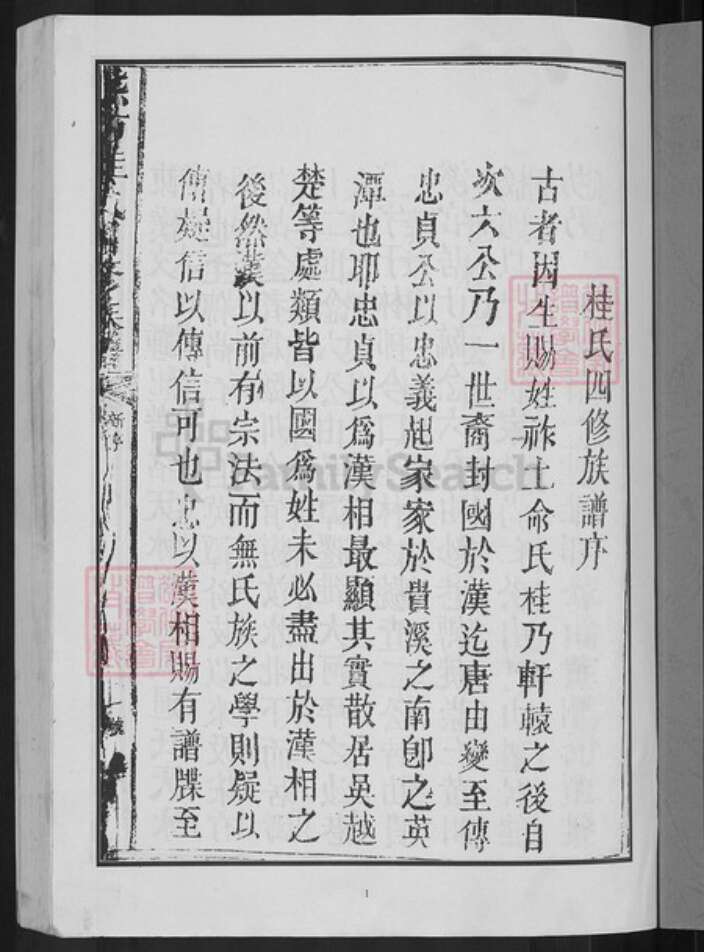 桂氏四修族譜序
古者因生賜姓祚土命氏桂乃軒轅之後自
炎六公乃一世裔封國於漢迄唐由夔至傳
忠貞公以忠義起家家於貴溪之南卽之英
潭也耶忠貞以爲漢相最顯其實散居吳越
楚等處類皆以國爲姓未必盡出於漢相之
後然漢以前有宗法而無氏族之學則疑以
傳疑信以傳信可也忠以漢相賜有譜牒至
新序
一
FamilySearch
1